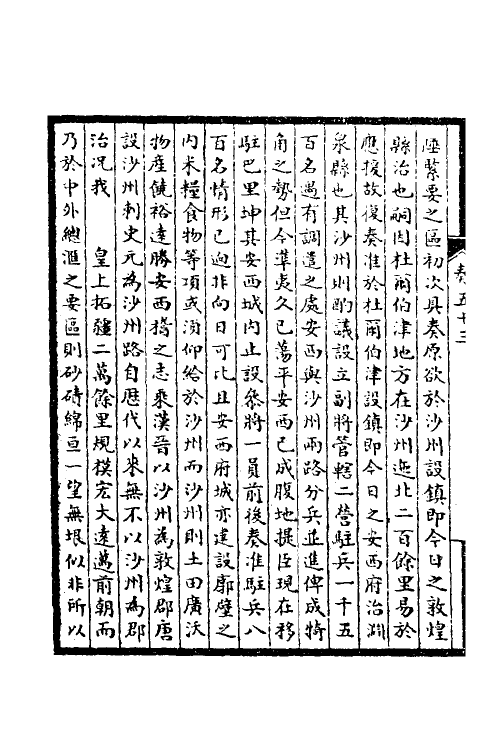 壓緊要之區初次具奏原欲於沙州設鎮即今日之敦煌
縣治也嗣因杜爾伯津地方在沙州迤北二百餘里易於
應援故復奏准於杜爾伯津設鎮即今日之安西府治淵
泉縣也其沙州則酌議設立副將管轄二營駐兵一千五
百名遇有調遣之處安西與沙州兩路分兵並進俾成犄
角之勢但今準夷久已蕩平安西已成腹地提臣現在移
駐巴里坤其安西城内止設叅將一員前後奏准駐兵八
百名情形已迥非向日可比且安西府城亦達設廓壁之
内米糧食物等項或須仰給於沙州而沙州則土田廣沃
物産饒裕逺勝安西稽之志乘漢晉以沙州為敦煌郡唐
設沙州刺史元為沙州路自歴代以來無不以沙州為郡
治況我 皇上拓疆二萬餘里規模宏大逺邁前朝而
乃於中外總滙之要區則砂磧綿亘一望無垠似非所以
奏五十三